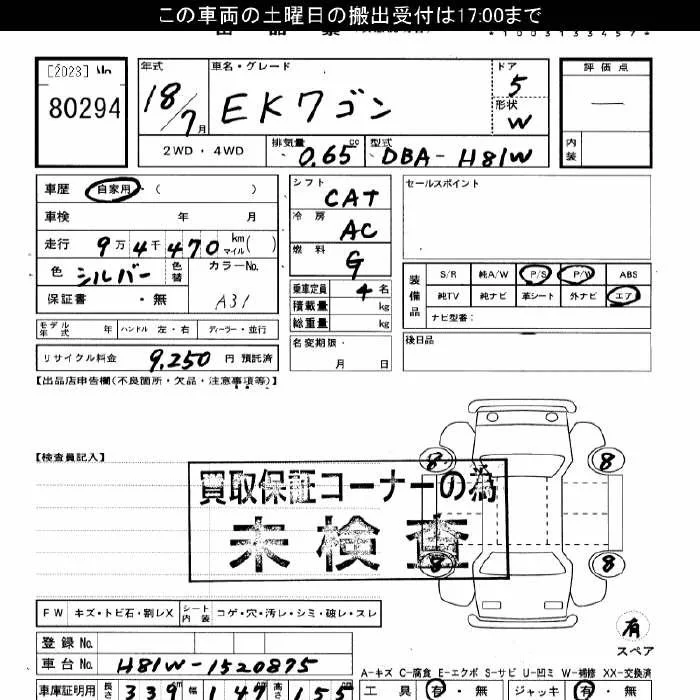 この車両の土曜日の搬出受付は17:00まで
*1003133457*
[2023] No
80294
年式
18/7月
車名・グレード
EKワゴン
ドア
5
形状
W
評価点
—
内装
2WD・4WD
排気量 0.65 cc
型式 DBA-H81W
車歴 自家用 ( )
車検 年 月
走行 9万4千470 km マイル( )
色 シルバー 色替
カラーNo. A31
保証書 ・無
モデル年式 年 ハンドル 左・右 ディーラー・並行
リサイクル料金 9,250 円 預託済
シフト CAT
冷房 AC
燃料 G
乗車定員 4 名
積載量 kg
総重量 kg
名変期限・ 月 日
セールスポイント
装備品
S/R 純A/W P/S P/W ABS
純TV 純ナビ 革シート 外ナビ エア
ナビ型番:
後日品
【出品店申告欄(不良箇所・欠品・注意事項等)】
【検査員記入】
買取保証コーナーの為
未検査
8 8
8 8
有
スペア
FW キズ・トビ石・割レX シート内装 コゲ・穴・汚レ・シミ・破レ・スレ
登録 No.
車台 No. H81W-1520875
A-キズ C-腐食 E-エクボ S-サビ U-凹ミ W-補修 XX-交換済
車庫証明用 長さ 339 幅 147 高さ 155
工具 有・無 ジャッキ 有・無